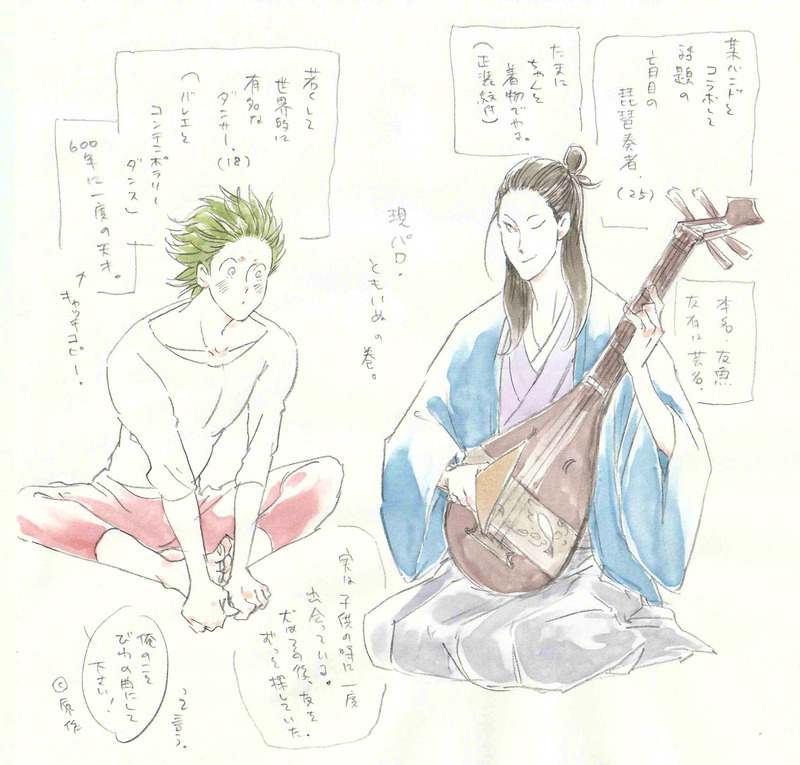 某バンドと
コラボして
話題の
盲目の
琵琶奏者。
(25)
たまに
ちゃんと
着物でやる。
(正装紋付)
本名・友魚
友有は芸名。
現パロ・
ともいぬの巻。
若くして
世界的に
有名な
ダンサー。
(18)
(バレエと
コンテンポラリー
ダンス)
600年に一度の天才。
↑
キャッチコピー。
実は子供の時に一度
出会っている。
犬はその後、友を
ずっと探していた。
俺のことを
びわの曲にして
下さい!
って言う。
©原作